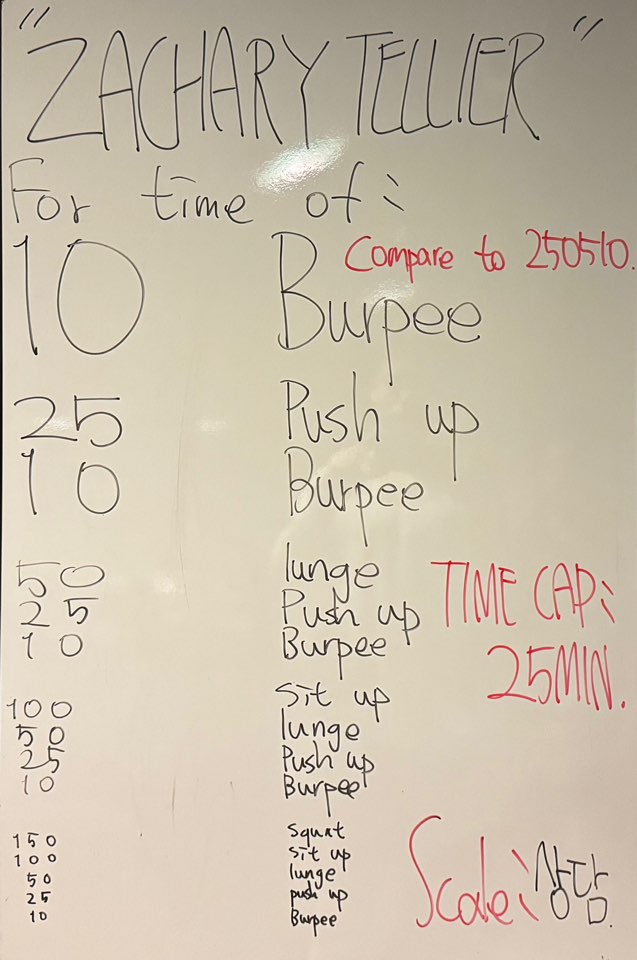 "ZACHARY TELLIER"
For time of:
Compare to 250510.
10 Burpee
25 Push up
10 Burpee
50 lunge
25 Push up
10 Burpee
TIME CAP:
25MIN.
100 sit up
50 lunge
25 Push up
10 Burpee
150 squat
100 sit up
50 lunge
25 push up
10 Burpee
Scale: 상담.